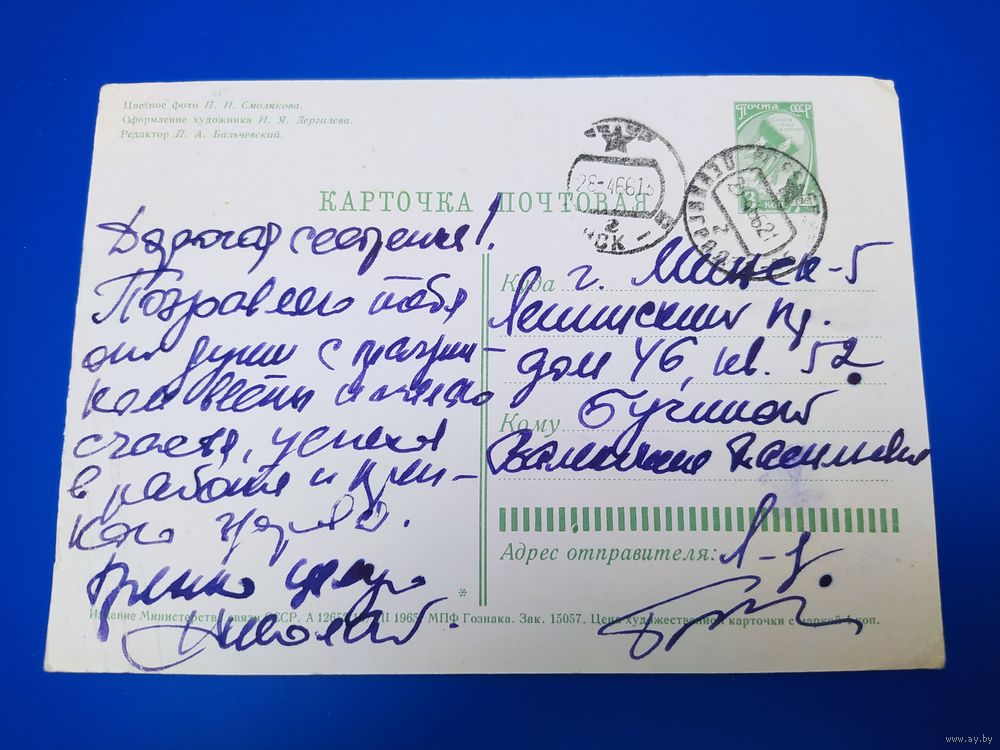 Цветное фото П. И. Смолякова.
Оформление художника И. Я. Дергилева.
Редактор П. А. Бальчевский.
Почта СССР
КАРТОЧКА ПОЧТОВАЯ
28-4 66 13
Дорогая сестренка!
Поздравляю тебя
от души с праздни-
ком весны и желаю
счастья, успеха
в работе и креп-
кого здоровья.
Крепко целую
Николай.
Куда г. Минск-5
Ленинский пр.
дом 46, кв. 52.
Кому
Валентине Васильевне
Адрес отправителя: Л-д.
Издание Министерства связи СССР. А 1965 МПФ Гознака. Зак. 15057. Цена художественной карточки с маркой 4 коп.
www.ay.by